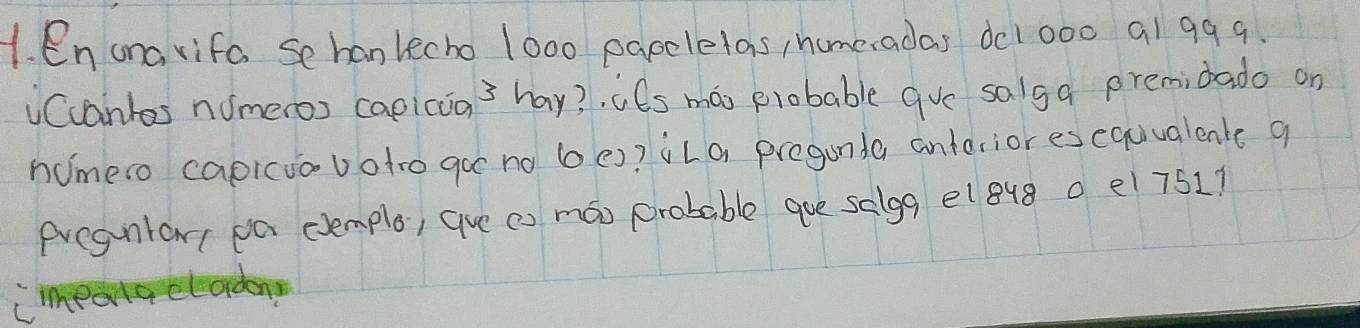 1. En una rifa se han hecho 1000 papeletas, numeradas del 000 al 999.
¿Cuántos números capicúa³ hay?. ¿Es más probable que salga premidado un
número capicúa u otro que no lo es? ¿La pregunta anterior es equivalente a
preguntar, pa ejemplo, que es más probable que salga el 848 o el 751?